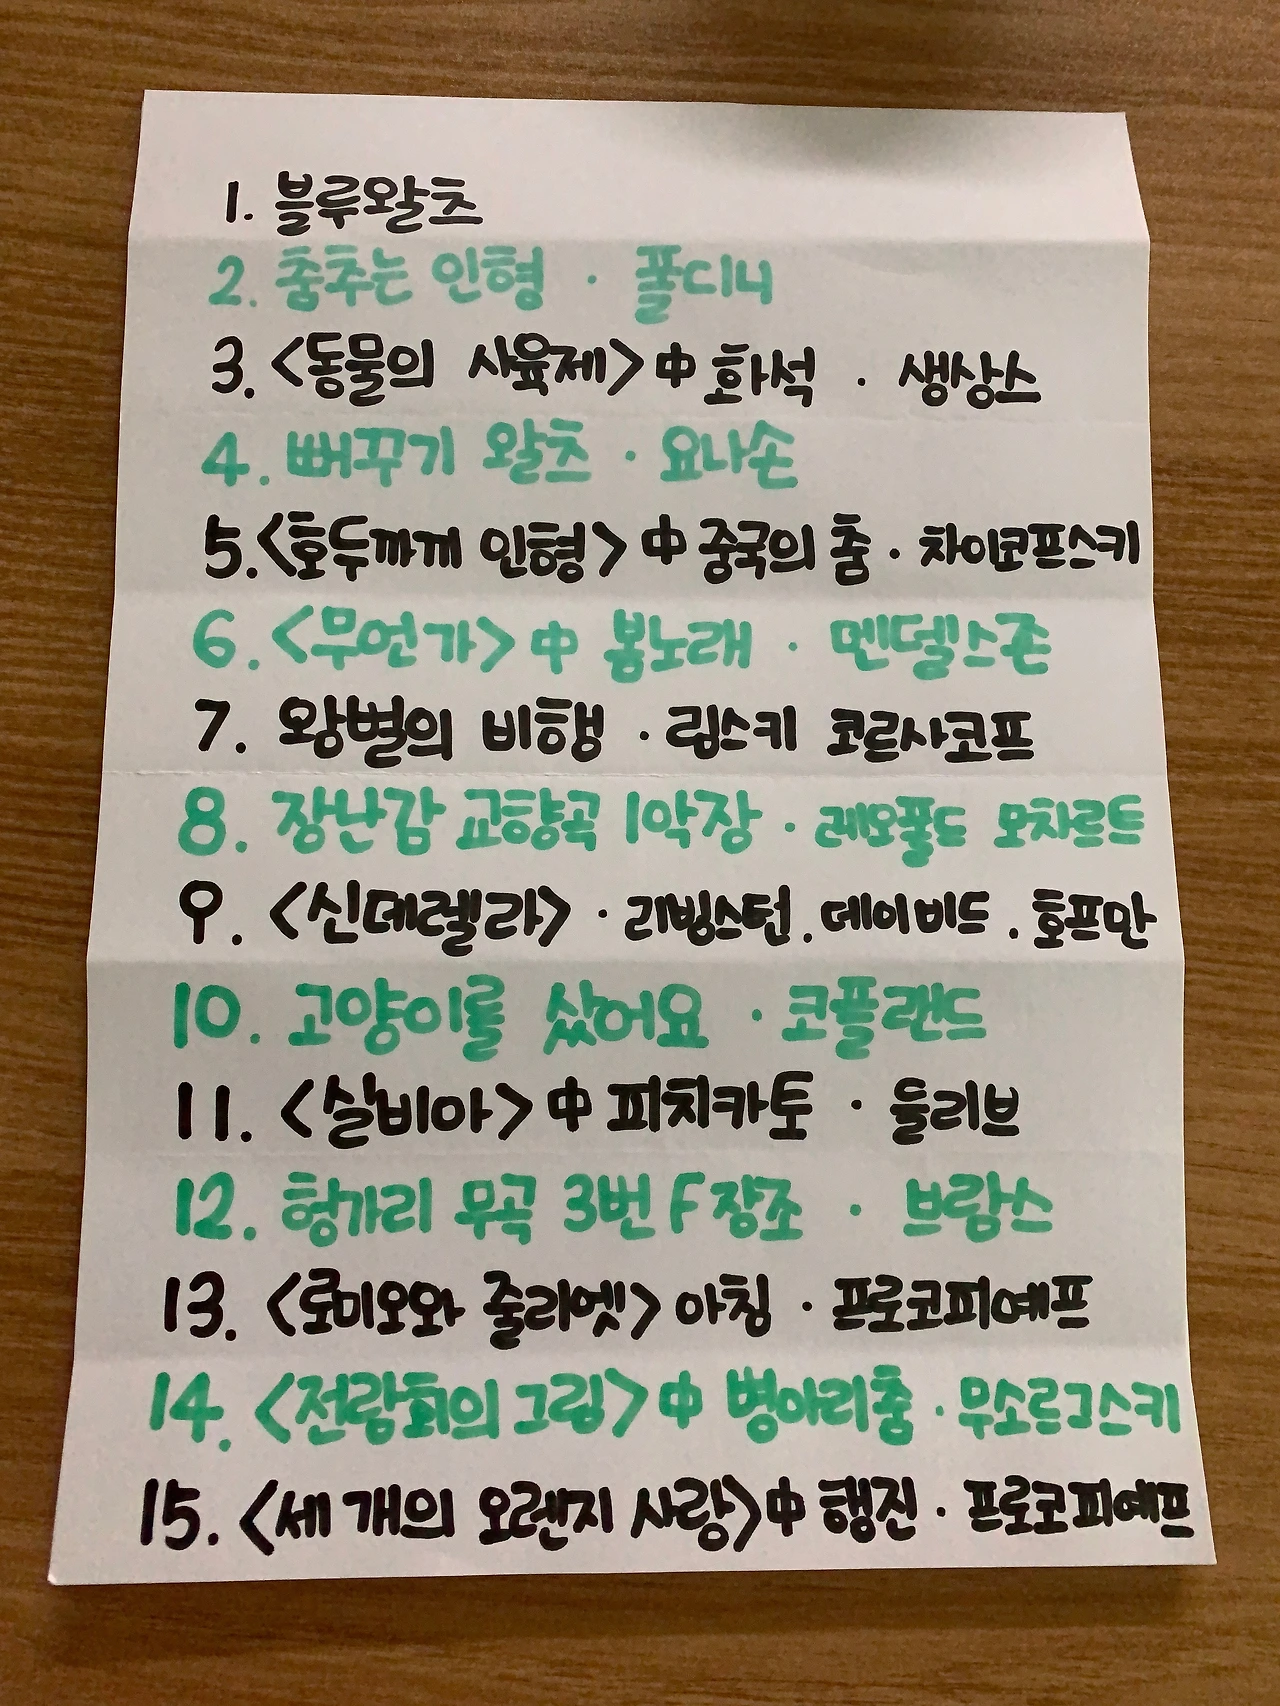 1. 블루왈츠
2. 춤추는 인형 · 폴디니
3. <동물의 사육제> 中 화석 · 생상스
4. 뻐꾸기 왈츠 · 요나손
5. <호두까기 인형> 中 중국의 춤 · 차이코프스키
6. <무언가> 中 봄노래 · 멘델스존
7. 왕벌의 비행 · 림스키 코르사코프
8. 장난감 교향곡 1악장 · 레오폴드 모차르트
9. <신데렐라> · 리빙스턴 . 데이비드 . 호프만
10. 고양이를 샀어요 · 코플랜드
11. <실비아> 中 피치카토 · 들리브
12. 헝가리 무곡 3번 F장조 · 브람스
13. <로미오와 줄리엣> 아침 · 프로코피예프
14. <전람회의 그림> 中 병아리춤 · 무소르그스키
15. <세 개의 오렌지 사랑> 中 행진 · 프로코피예프